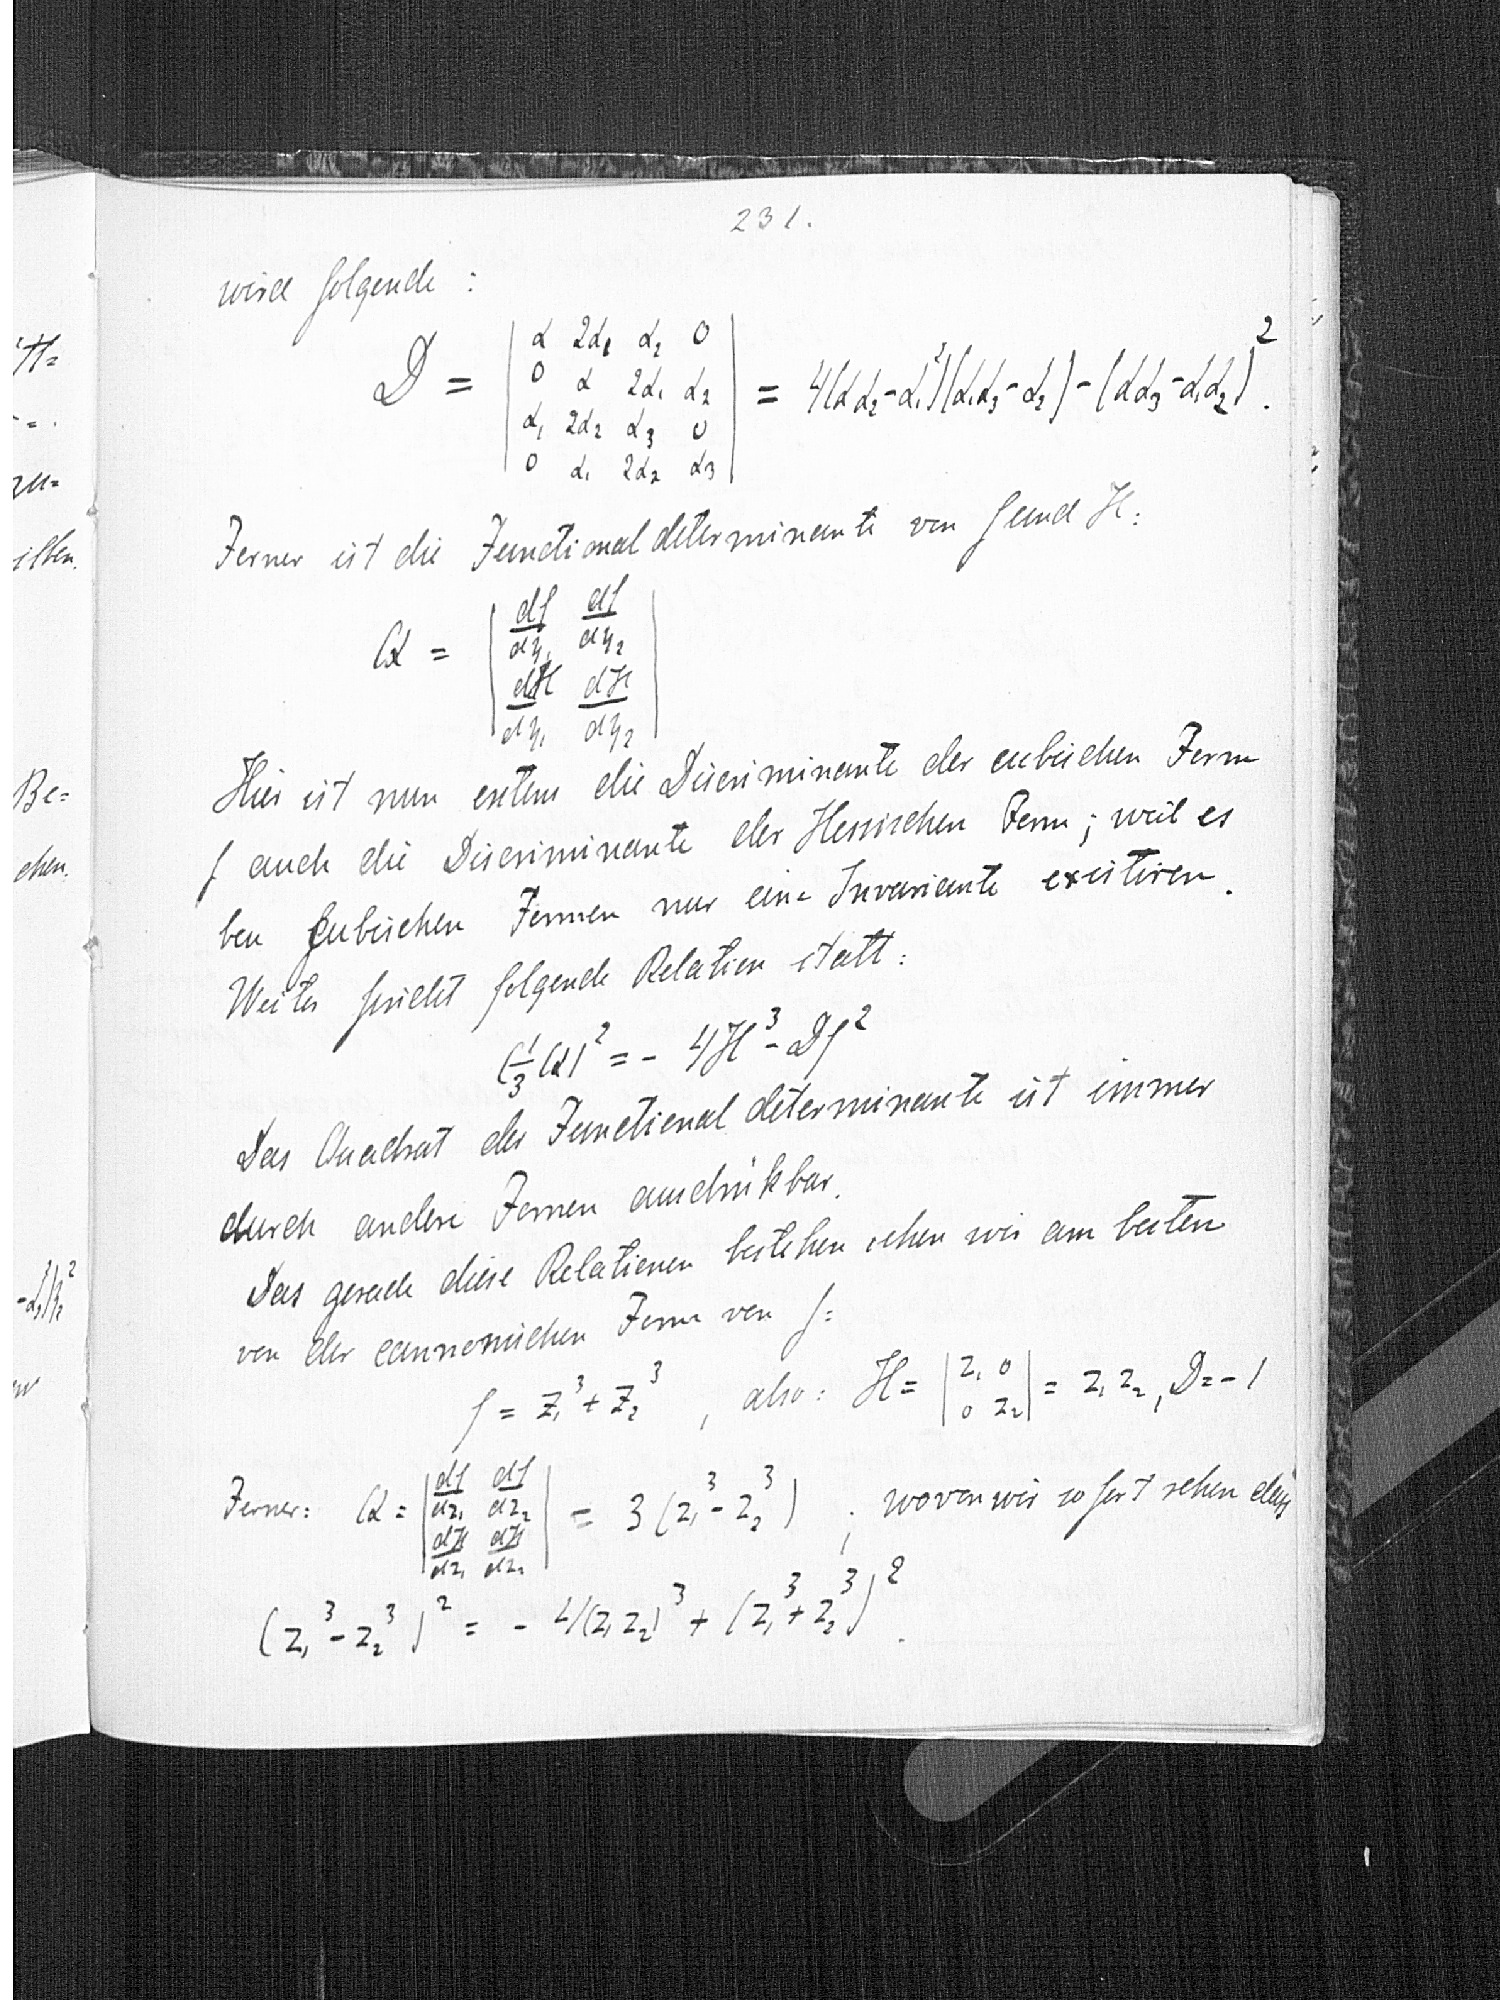 231.
wird folgende:
D = | α 2α₁ α₂ 0 |
| 0 α 2α₁ α₂ | = 4(αα₂-α₁²)(α₁α₃-α₂)-(αα₃-α₁α₂)².
| α₁ 2α₂ α₃ 0 |
| 0 α₁ 2α₂ α₃ |
Ferner ist die Functionaldeterminante von f und H:
Q = | df/dy₁ df/dy₂ |
| dH/dy₁ dH/dy₂ |
Hier ist nun erstens die Discriminante der cubischen Form
f auch die Discriminante der Hessischen Form; weil es
bei cubischen Formen nur eine Invariante existiren.
Weiter findet folgende Relation statt:
(1/3 Q)² = - 4H³ - Df²
Das Quadrat der Functionaldeterminante ist immer
durch andere Formen ausdrükbar.
Das gerade diese Relationen bestehen sehen wir am besten
von der cannonischen Form von f:
f = z₁³ + z₂³, also: H = | z₁ 0 | = z₁ z₂, D = -1
| 0 z₂ |
Ferner: Q = | df/dz₁ df/dz₂ | = 3 (z₁³ - z₂³) ; wovon wir sofort sehen dass
| dH/dz₁ dH/dz₂ |
(z₁³ - z₂³)² = - 4(z₁z₂)³ + (z₁³ + z₂³)².